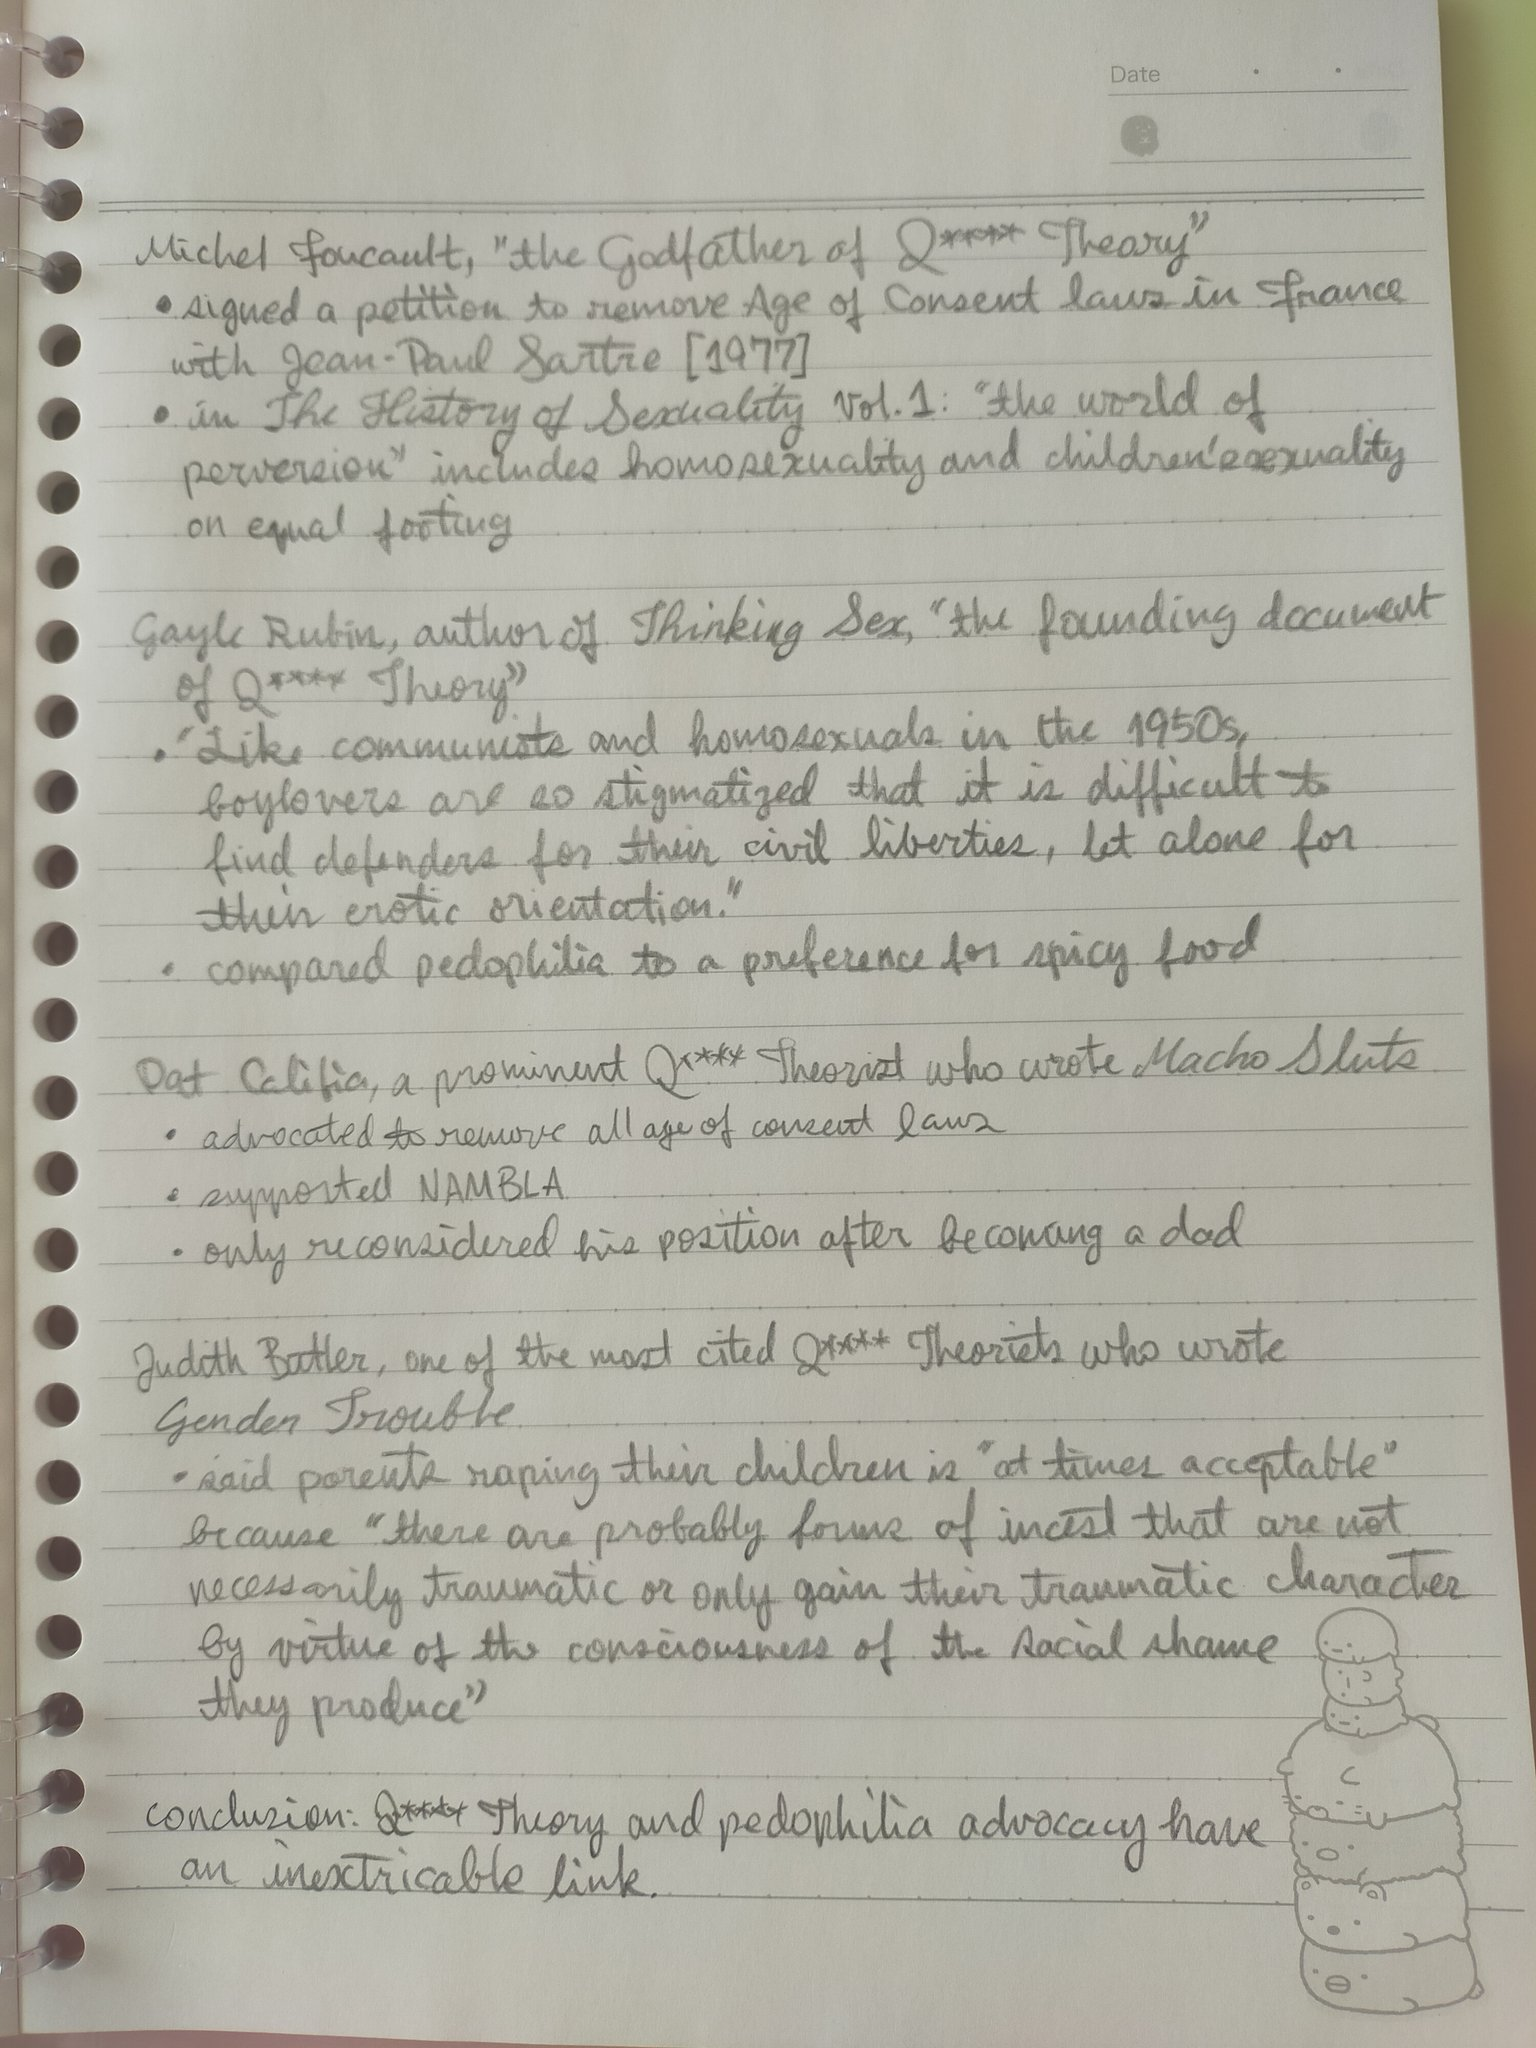 Date
Michel Foucault, "the Godfather of Q**** Theory"
• signed a petition to remove Age of Consent laws in France
with Jean-Paul Sartre [1977]
• in The History of Sexuality Vol.1: "the world of
perversion" includes homosexuality and children's sexuality
on equal footing
Gayle Rubin, author of Thinking Sex, "the founding document
of Q**** Theory"
• "Like communists and homosexuals in the 1950s,
boylovers are so stigmatized that it is difficult to
find defenders for their civil liberties, let alone for
their erotic orientation."
• compared pedophilia to a preference for spicy food
Pat Califia, a prominent Q**** Theorist who wrote Macho Sluts
• advocated to remove all age of consent laws
• supported NAMBLA
• only reconsidered his position after becoming a dad
Judith Butler, one of the most cited Q**** Theorists who wrote
Gender Trouble
• said parents raping their children is "at times acceptable"
because "there are probably forms of incest that are not
necessarily traumatic or only gain their traumatic character
by virtue of the consciousness of the social shame
they produce"
conclusion: Q**** Theory and pedophilia advocacy have
an inextricable link.